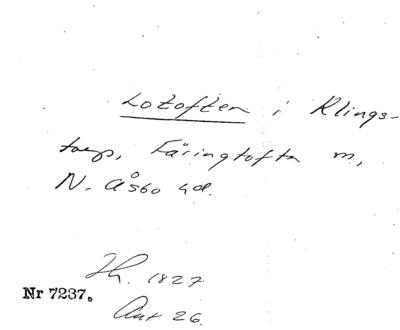 Lotoften i Klings-
torp, Färingtofta m,
N. Åsbo hd.
Hh. 1827
Nr 7237.
Akt 26.